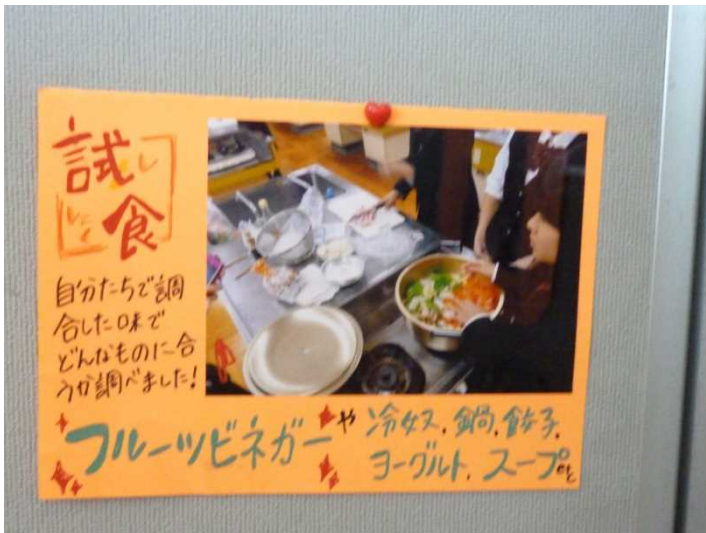 試食
ししょく
自分たちで調
合した味で
どんなものに合
うか調べました!
フルーツビネガーや
冷奴、鍋、餃子、
ヨーグルト、スープetc